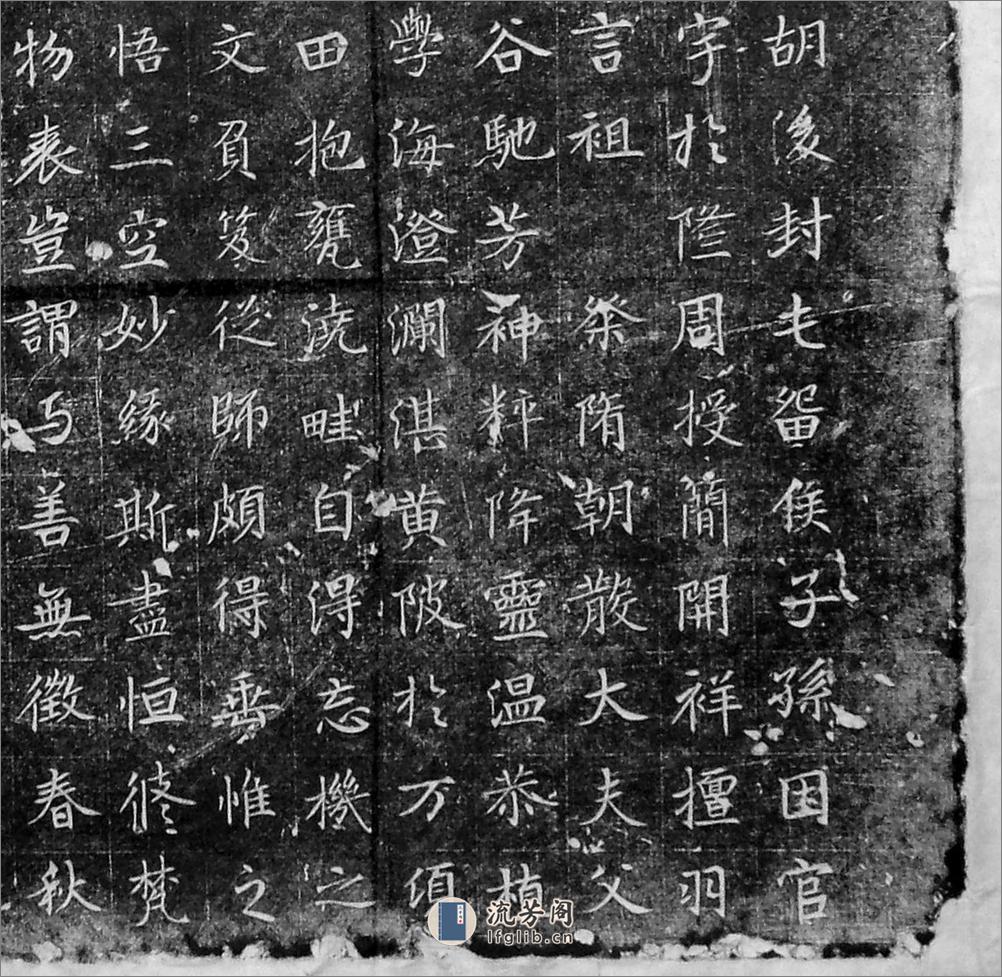 胡後封屯留侯子孫因官
宇於隆周授簡開祥擅羽
言祖 祭隋朝散大夫父
谷馳芳神粹降靈温恭植
學海澄瀾湛黄陂於万頃
田抱甕澆畦自得忘機之
文負笈從師頗得無惟之
悟三空妙緣斯盡恒修梵
物表豈謂与善無徵春秋
流芳阁
lfglib.cn